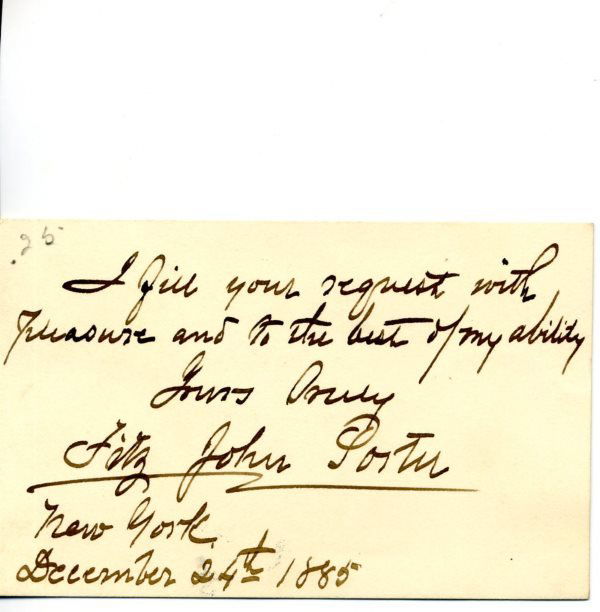 .25
I fill your request with
pleasure and to the best of my ability
Yours truly
Fitz John Porter
New York
December 24th 1885